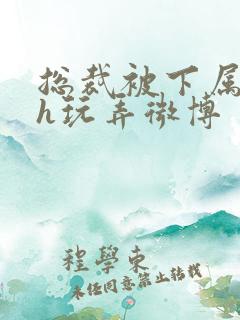 总裁被下属
h玩弄微博
程學東
未经同意禁止转载